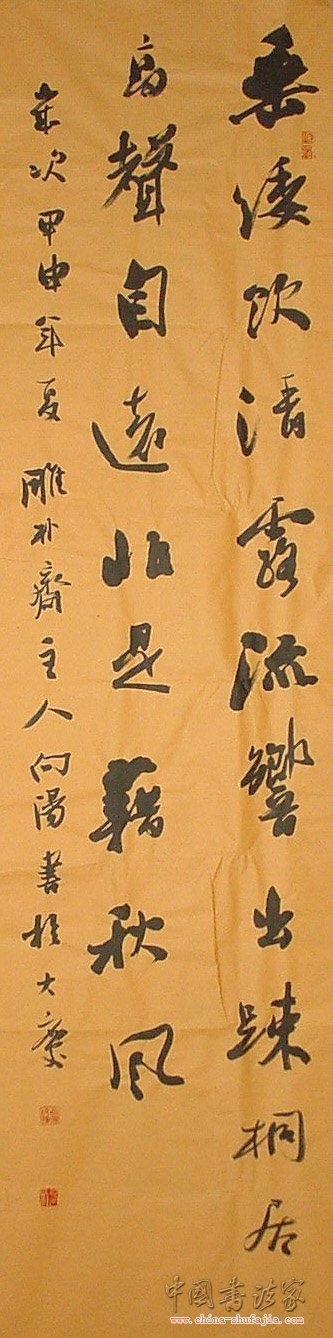 垂緌飲清露流響出踈桐居
高聲自遠非是藉秋風
歲次甲申年夏 雕朴齋主人向陽書於大慶
中國書法家
www.china-shufajia.com